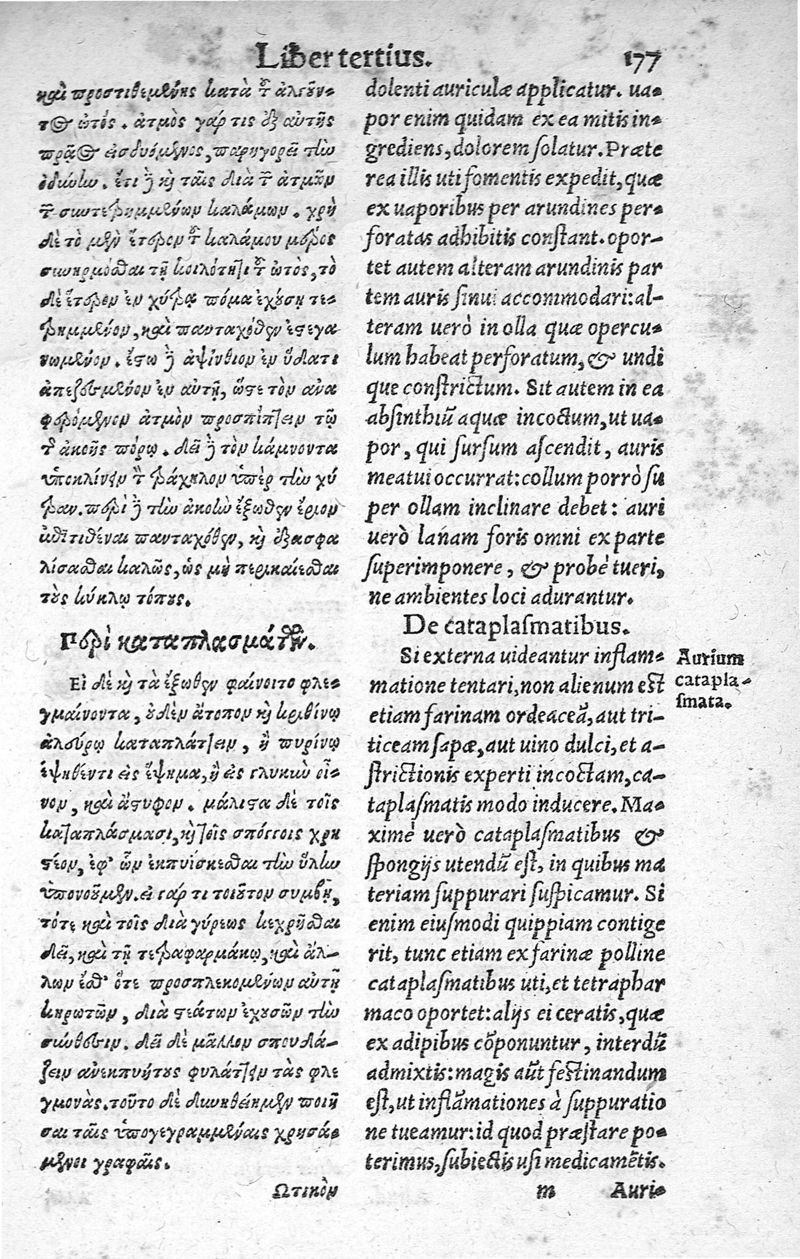 Liber tertius. 177
καὶ προστιθεμένης κατὰ τ̃ ἀλγοῦν-
τος ὠτός. ἀτμὸς γάρ τις ἐξ αὐτῆς
πρᾶος εἰσδυόμενος, παρηγορεῖ τὴν
ὀδύνην. ἔτι ἢ κὴ ταῖς διὰ τ̃ ἀτμῶν
τ̃ συντετρημμένων καλάμων. χρὴ
δὲ τὸ μὲν ἕτερον τ̃ καλάμου μέρος
συνηρμόσθαι τῇ κοιλότητι τ̃ ὠτὸς, τὸ
δὲ ἕτερον ἐν χύτρᾳ πόμα ἐχούσῃ τε-
τρημμένον, καὶ πανταχόθεν ἐστεγα
νωμένον. ἔστω ἢ ἀψίνθιον ἐν ὕδατι
ἀπεζεσμένον ἐν αὐτῇ, ὥστε τὸν ἀνα
φερόμενον ἀτμὸν προσπίπτειν τῷ
τ̃ ἀκοῆς πόρῳ. δεῖ ἢ τὸν κάμνοντα
ὑποκλίνειν τ̃ τράχηλον ὑπὲρ τὴν χύ
τραν. περὶ ἢ τὴν ἀκοὴν ἔξωθεν ἔριον
ἐπιτιθέναι πανταχόθεν, κὴ ἐξασφα
λίσασθαι καλῶς, ὡς μὴ περικαίεσθαι
τοὺς κύκλῳ τόπους.
Περὶ καταπλασμάτων.
Εἰ δὲ κὴ τὰ ἔξωθεν φαίνοιτο φλε-
γμαίνοντα, οὐδὲν ἄτοπον κὴ κριθίνῳ
ἀλεύρῳ καταπλάττειν, ἢ πυρίνῳ
ἑψηθέντι εἰς ἕψημα, ἢ εἰς γλυκὺν οἶ-
νον, καὶ ἄστυφον. μάλιστα δὲ τοῖς
καταπλάσμασι, κὴ τοῖς σπόγγοις χρη
στέον, ἐφ' ὧν ἐκπυΐσκεσθαι τὴν ὕλην
ὑπονοοῦμεν. εἰ γάρ τι τοιοῦτον συμβῇ,
τότε καὶ τοῖς διὰ γύρεως κεχρῆσθαι
δεῖ, καὶ τῇ τετραφαρμάκῳ, καὶ ἄλ-
λων ἔσθ' ὅτε προσπλεκομένων αὐτῇ
κηρωτῶν, διὰ στεάτων ἐχουσῶν τὴν
σύνθεσιν. δεῖ δὲ μᾶλλον σπουδά-
ζειν ἀνεκπυήτους φυλάττειν τὰς φλε
γμονάς. τοῦτο δὲ δυνηθείημεν ποιῆ
σαι ταῖς ὑπογεγραμμέναις χρησά-
μενοι γραφαῖς.
Ὠτικὸν
dolenti auriculæ applicatur. ua-
por enim quidam ex ea mitis in-
grediens, dolorem solatur. Præte
rea illis uti fomentis expedit, quæ
ex uaporibus per arundines per-
foratas adhibitis constant. opor-
tet autem alteram arundinis par
tem auris sinui accommodari: al-
teram uerò in olla quæ opercu-
lum habeat perforatum, & undi
que constrictum. Sit autem in ea
absinthiũ aquæ incoctum, ut ua-
por, qui sursum ascendit, auris
meatui occurrat: collum porrò su
per ollam inclinare debet: auri
uerò lanam foris omni ex parte
superimponere, & probè tueri,
ne ambientes loci adurantur.
De cataplasmatibus.
Si externa uideantur inflam-
matione tentari, non alienum est
etiam farinam ordeaceã, aut tri-
ticeam sapæ, aut uino dulci, et a-
strictionis experti incoctam, ca-
taplasmatis modo inducere. Ma-
ximè uerò cataplasmatibus &
spongijs utendũ est, in quibus ma
teriam suppurari suspicamur. Si
enim eiusmodi quippiam contige
rit, tunc etiam ex farinæ polline
cataplasmatibus uti, et tetraphar
maco oportet: alijs ei ceratis, quæ
ex adipibus cõponuntur, interdũ
admixtis: magis aũt festinandum
est, ut inflãmationes à suppuratio
ne tueamur: id quod præstare po-
terimus, subiectis usi medicamẽtis.
m Auri-
Aurium
catapla-
smata.